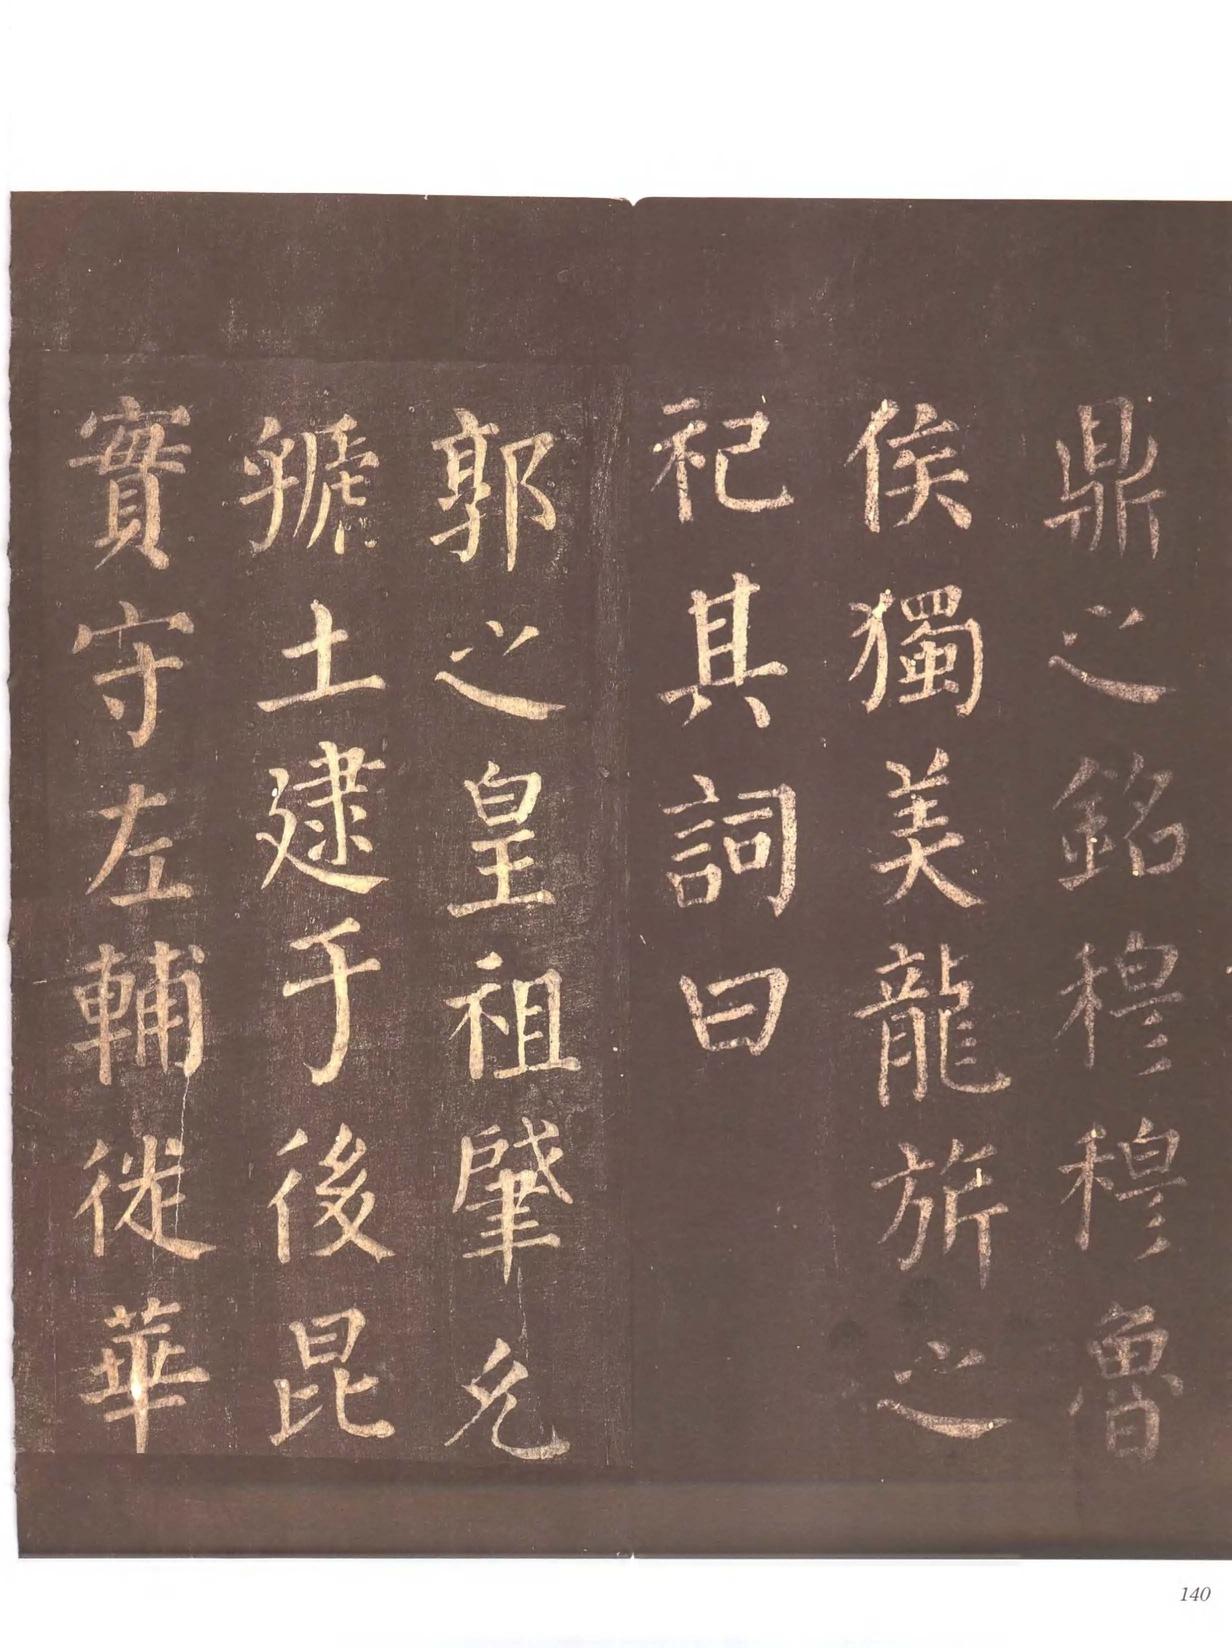 鼎之銘穆穆魯
侯獨美龍旂之
祀其詞曰
郭之皇祖肇允
虢土建于後昆
實守左輔徙華
140